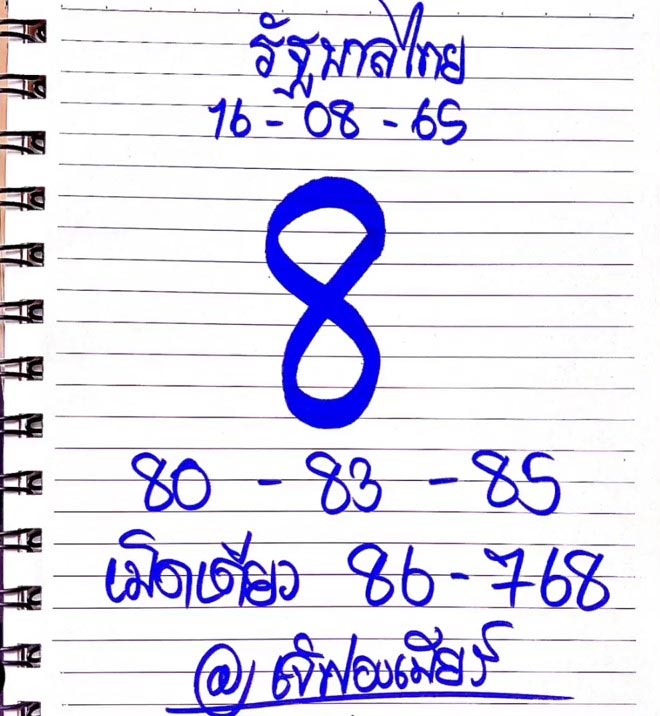 รัฐบาลไทย
16 - 08 - 65
8
80 - 83 - 85
เม็ดเดียว 86 - 768
@เจ๊ฟองเบียร์